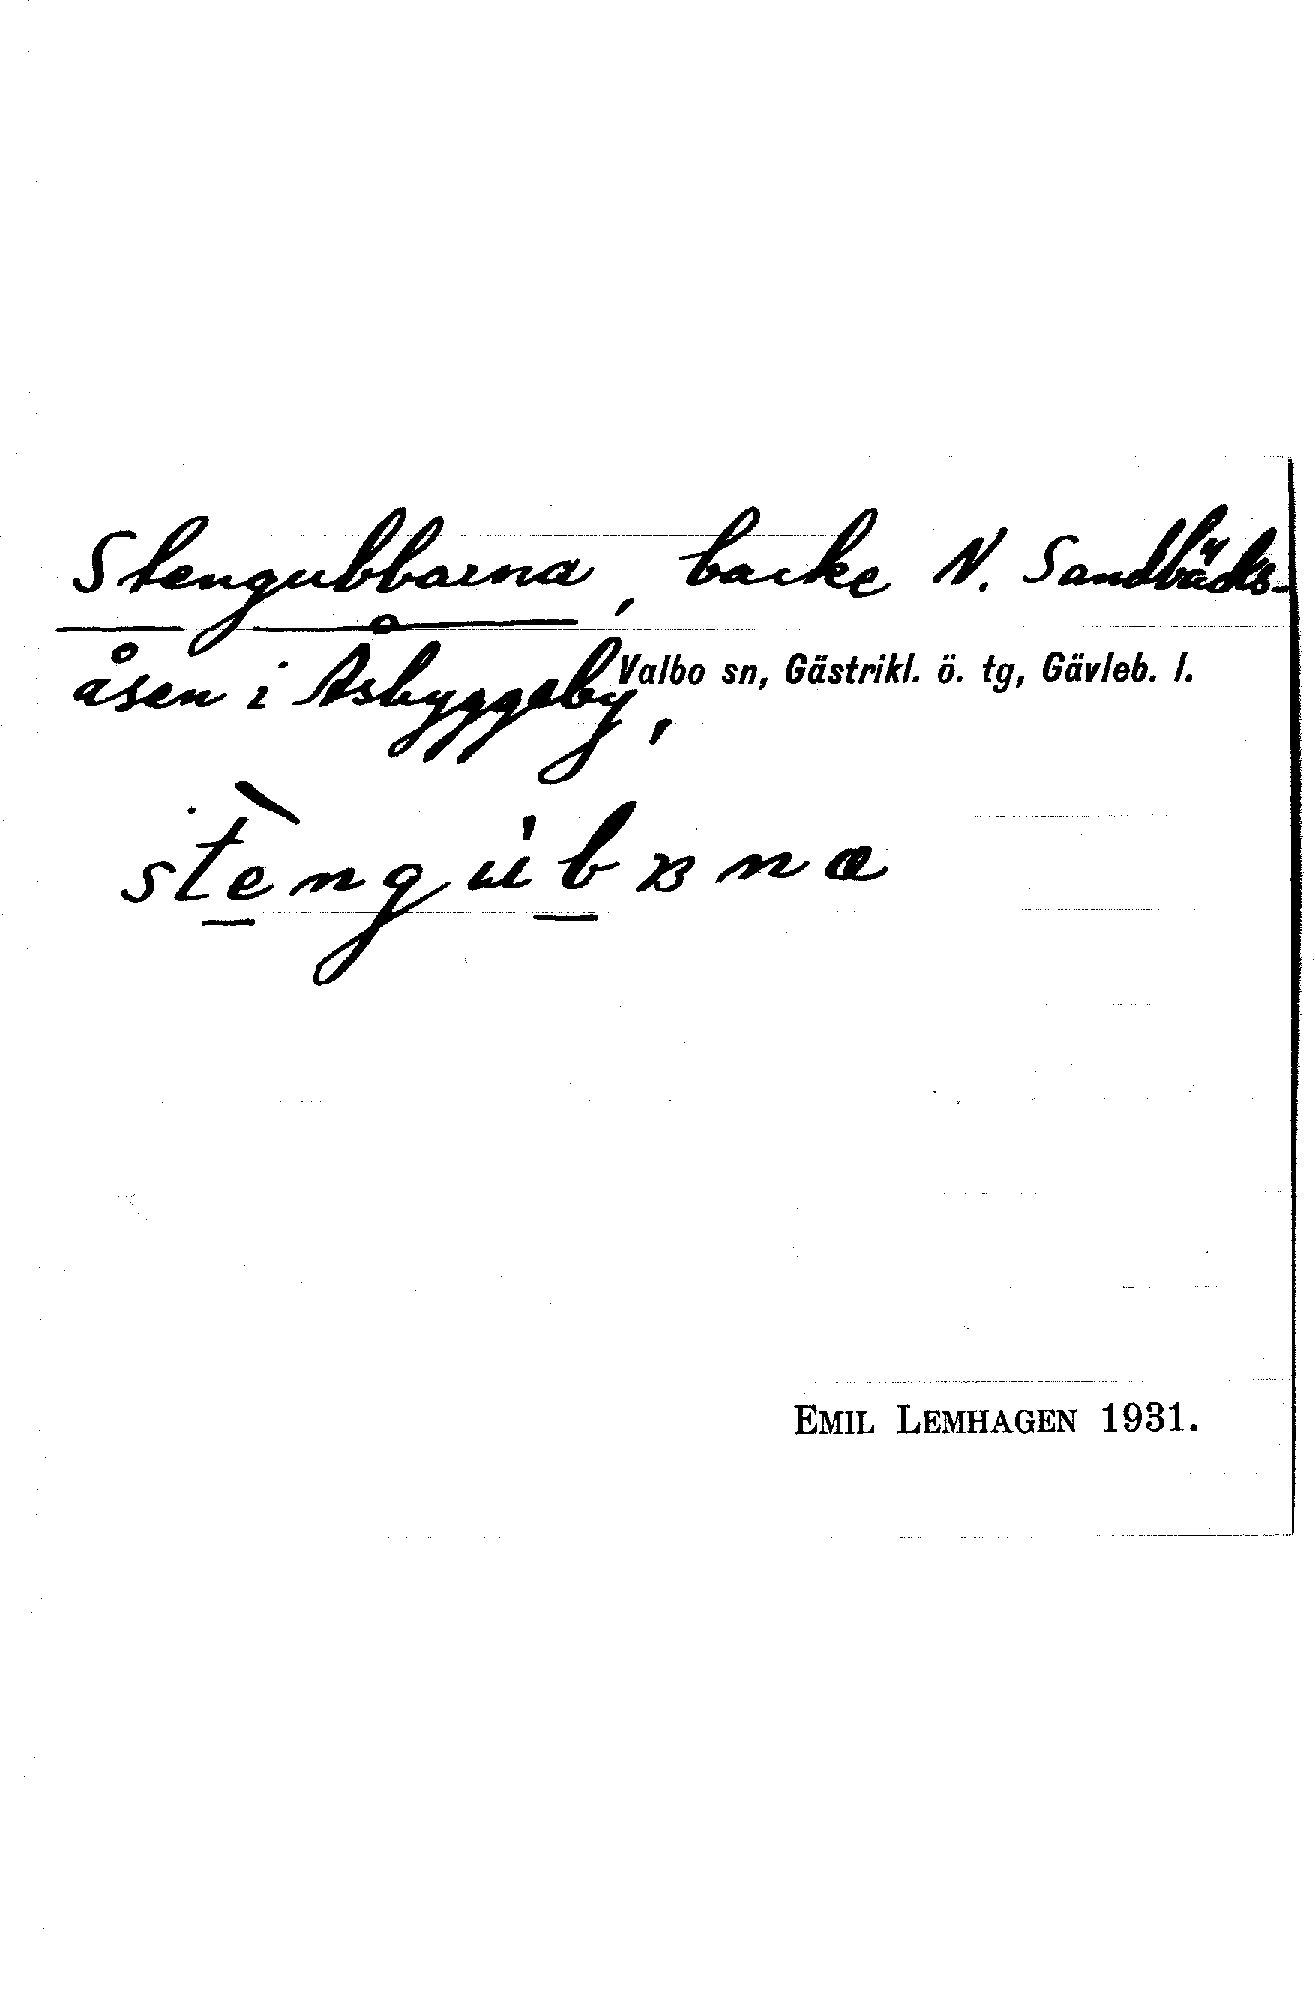 Stengubbarna, backe N. Sandbäcks-
åsen i Åsbyggeby,
Valbo sn, Gästrikl. ö. tg, Gävleb. l.
EMIL LEMHAGEN 1931.